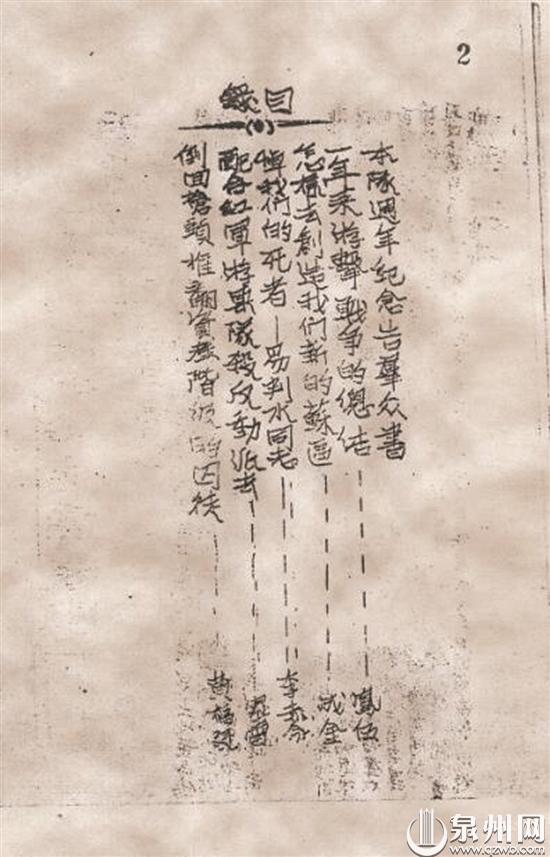 2
目錄
本隊週年紀念告羣众書
一年來游擊戰争的總结——鳳伍
怎樣去創造我們新的蘇區——成金
悼我們的死者——易判水同志——李
配合紅軍游擊隊殺反動派去
倒回槍頭推翻資產階級的因徒——黄
泉州网
www.qzwb.com